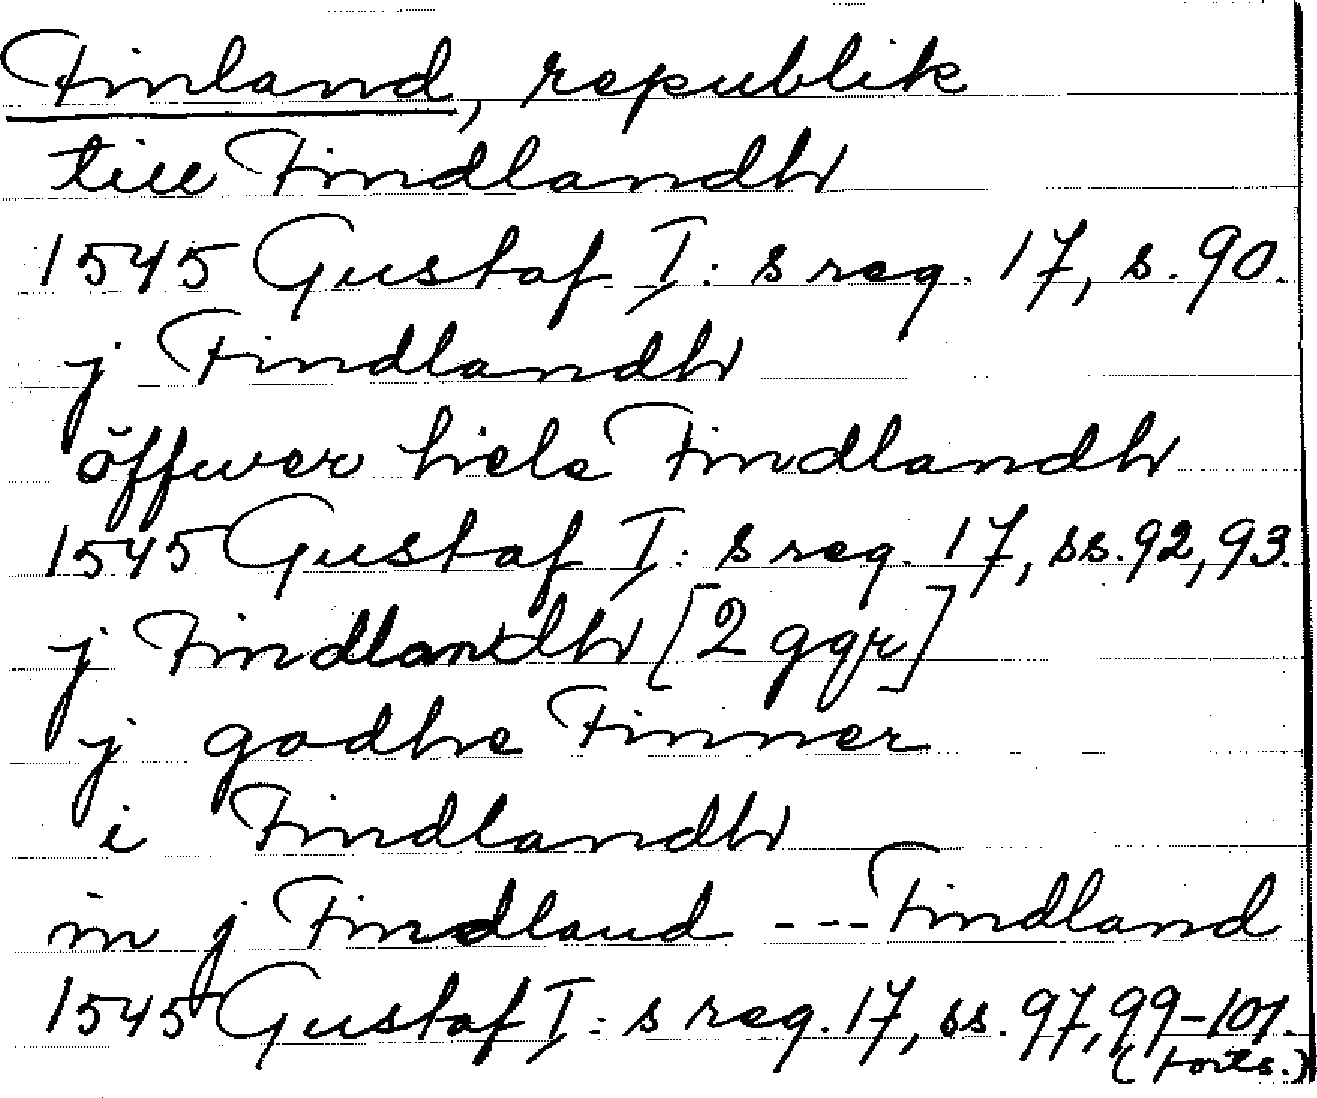 Finland, republik
till Findlandh
1545 Gustaf I: s reg. 17, s. 90.
j Findlandh
öffwer hiele Findlandh
1545 Gustaf I: s reg. 17, ss. 92, 93.
j Findlandh [2 ggr]
j godhe Finner
i Findlandh
in j Findland --- Findland
1545 Gustaf I: s reg. 17, ss. 97, 99-101.
(forts.)